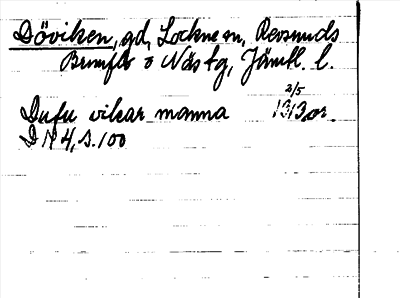 Döviken, gd, Lockne sn, Revsunds
Brunflo o Näs tg, Jämtl. l.
Dufu vikar manna 2/5 1313 or.
DN 4, s. 100